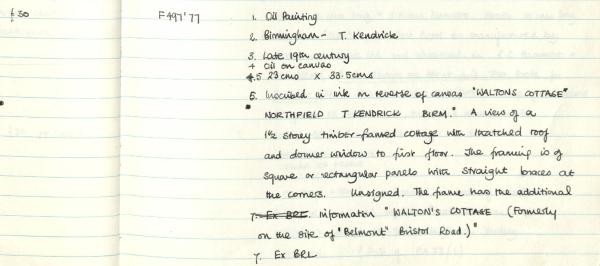 £30
F497'77
1. Oil Painting
2. Birmingham - T. Kendrick
3. Late 19th century
4 Oil on canvas
4.5 23 cms x 33.5cms
5. Inscribed in ink on reverse of canvas "WALTONS COTTAGE"
NORTHFIELD T KENDRICK BIRM." A view of a
1½ storey timber-framed cottage with thatched roof
and dormer window to first floor. The framing is of
square or rectangular panels with straight braces at
the corners. Unsigned. The frame has the additional
7. Ex BRL. information "WALTON'S COTTAGE (Formerly
on the site of "Belmont" Bristol Road.)"
7. Ex BRL